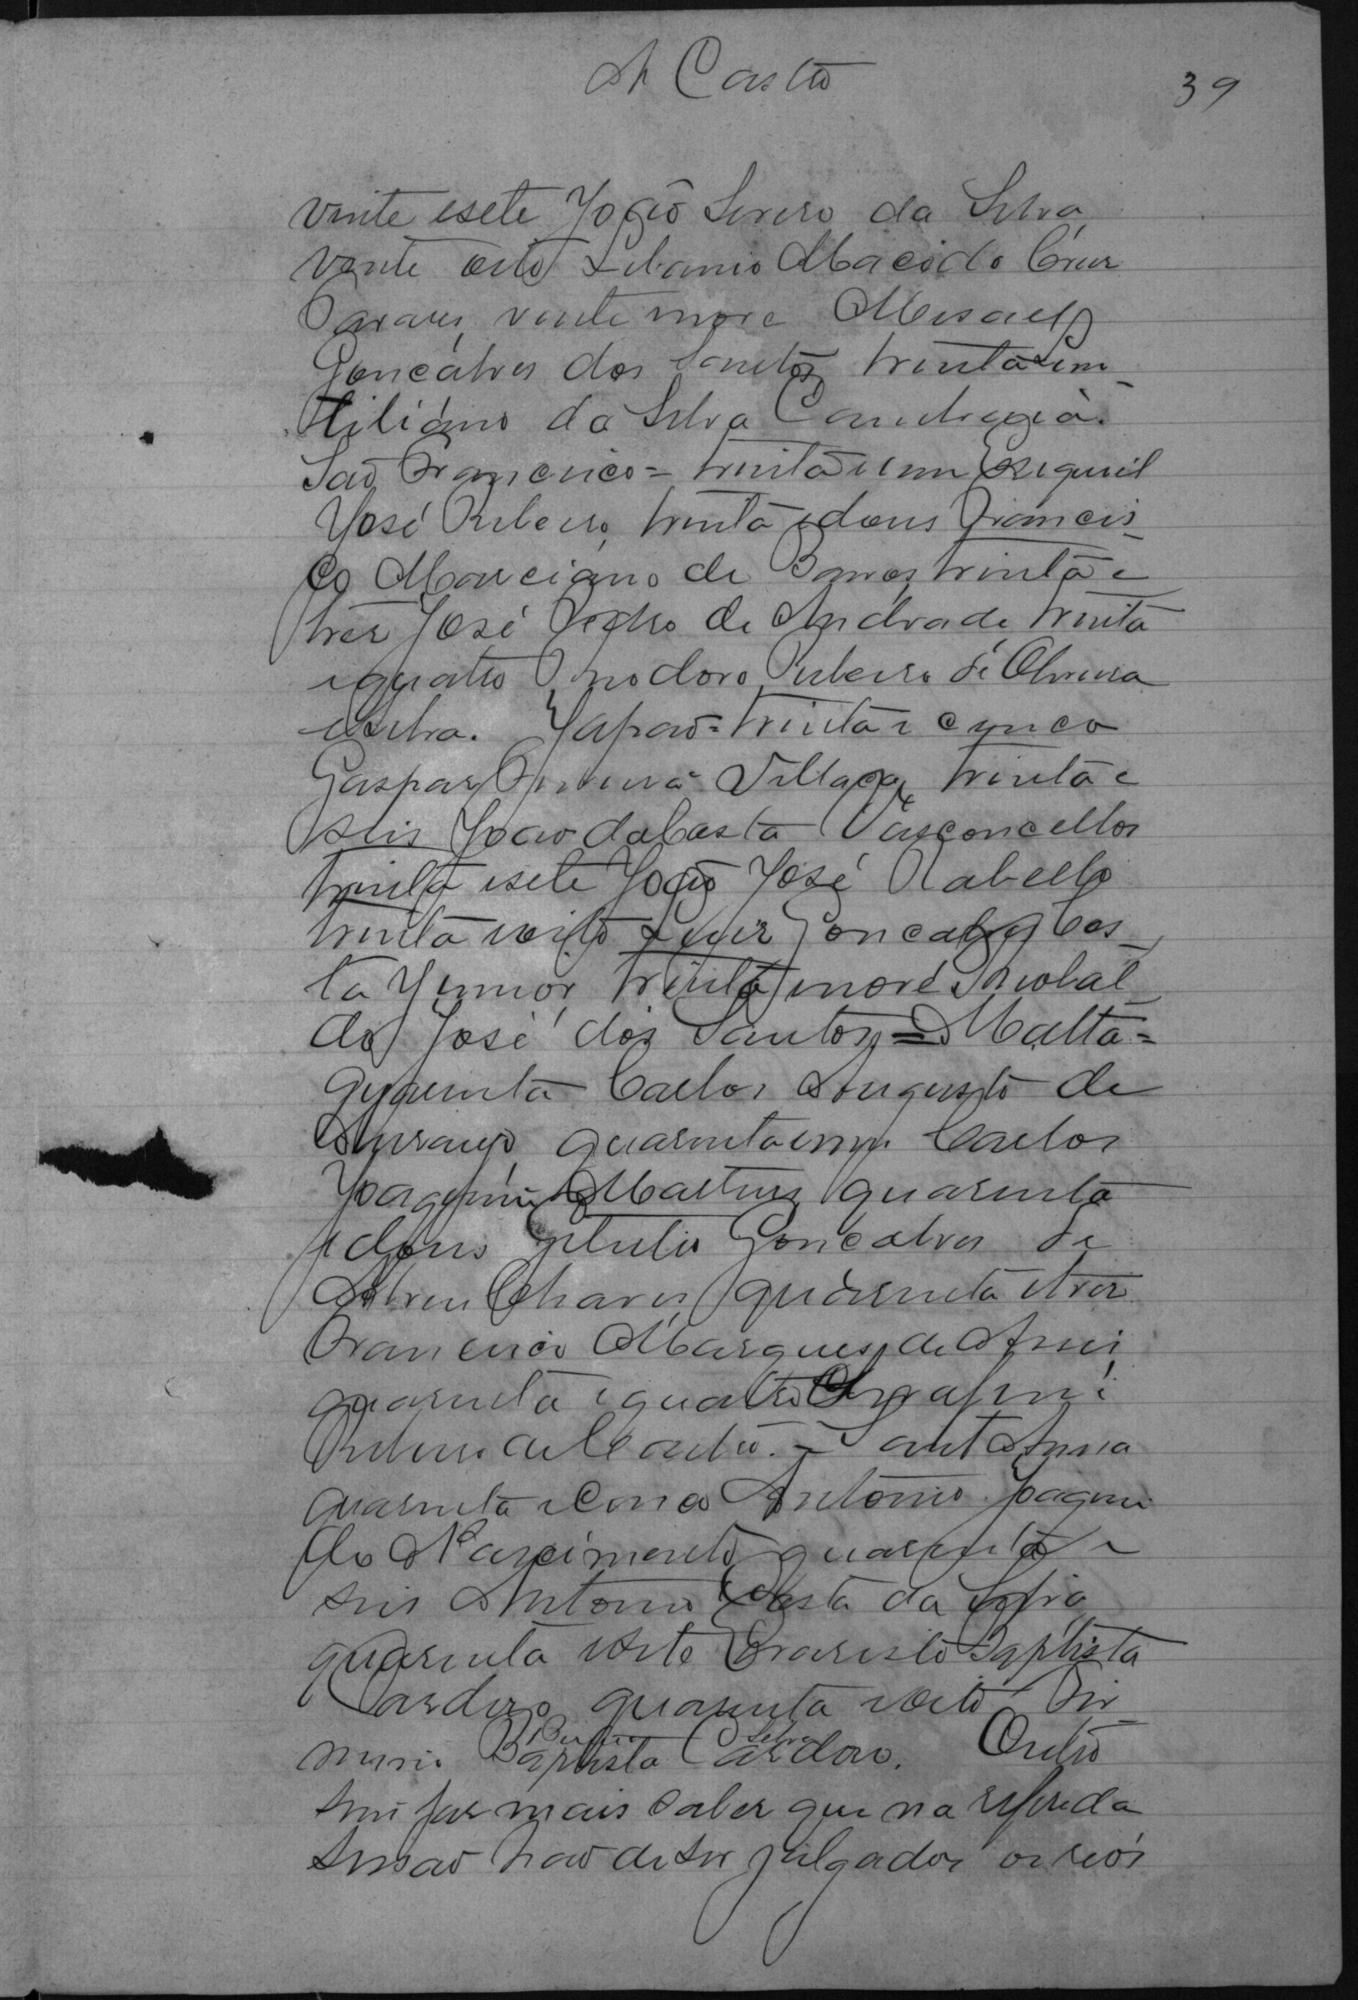 A Castro
39
vinte esete João Severo da Silva
vinte oito Libanio Macêdo Cruz
Tavares, vinte nove Misael
Gonçalves dos Santos trinta
da Silva
São Francisco = trinta eum Esequiel
José Ribeiro, trinta edous Francis-
co Marciano de Barros trinta e
tres José Pedro de Andrade, trinta
equatro Theodoro Ribeiro de Oliveira
eSilva. Japão = trinta e cynco
Gaspar Villaça, trinta e
seis João da Costa Vasconcellos
trinta esete João José Rabello
trinta eoito Luiz Gonçalves Cos-
ta Junior, trinta enove Theobal-
do José dos Santos = Matta =
quarenta Carlos Augusto de
Araujo quarenta eum Carlos
Joaquim Martins quarenta
edous Getulio Gonçalves de
Chaves quarenta etres
Francisco Marques de Assis
quarenta equatro Serafim
Ribeiro de Castro. = SantAnna
quarenta ecinco Antonio Joaquim
do Nascimento quarenta e
seis Antonio Costa da
quarenta esete Evaristo Baptista
Cardozo, quarenta eoito Fir-
Silva
mino Baptista Cardozo. Outro
sim faz mais saber que na referida
sessão hão de ser julgados os reós